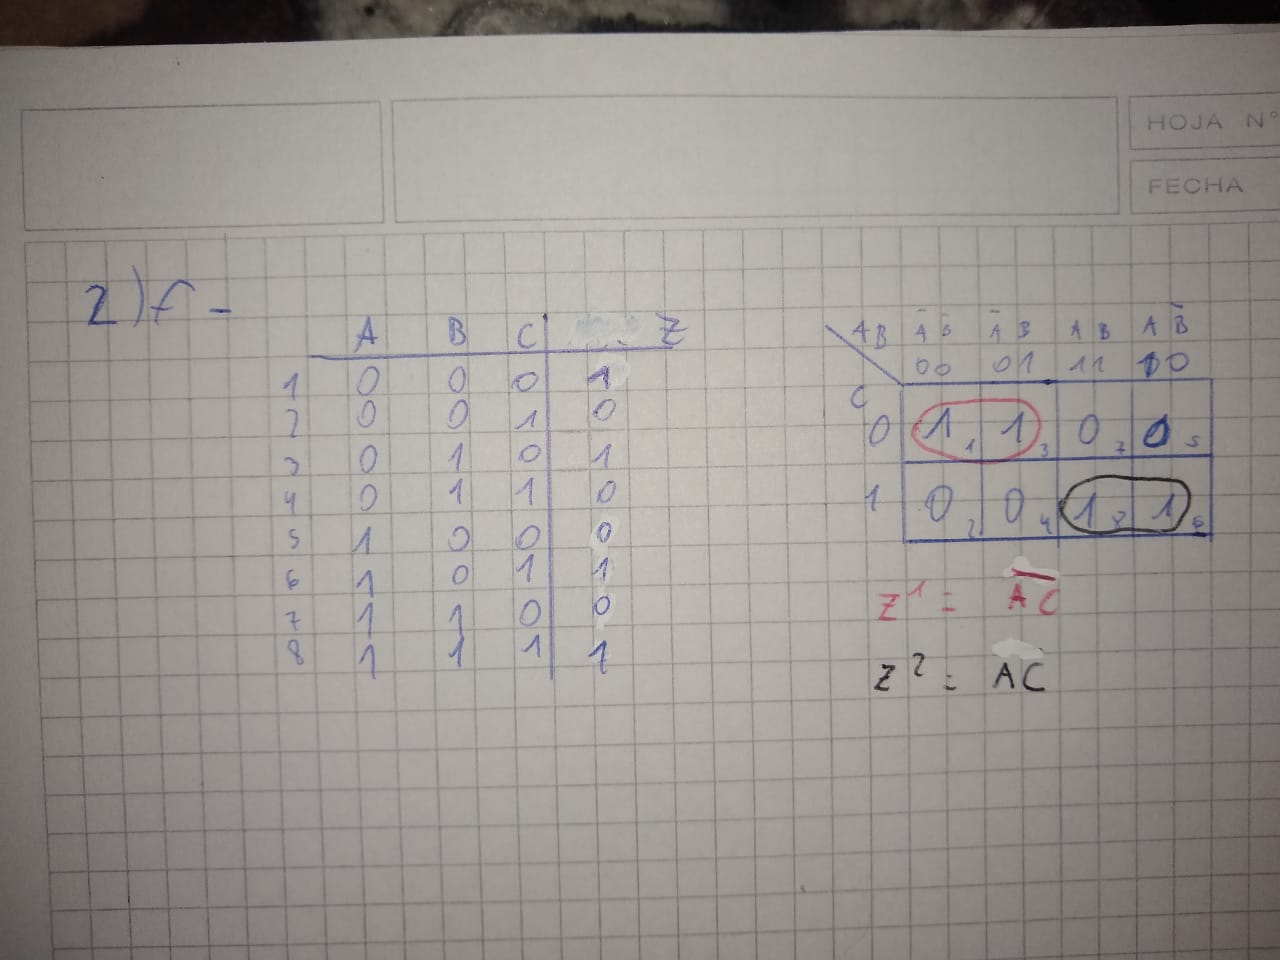 HOJA N°
FECHA
2) f -
A B C Z
1 0 0 0 1
2 0 0 1 0
3 0 1 0 1
4 0 1 1 0
5 1 0 0 0
6 1 0 1 1
7 1 1 0 0
8 1 1 1 1
AB A̅ B̅ A̅ B A B A B̅
00 01 11 10
C
0 1 1 1 3 0 7 0 5
1 0 2 0 4 1 8 1 6
Z¹ = A̅C̅
Z² = AC